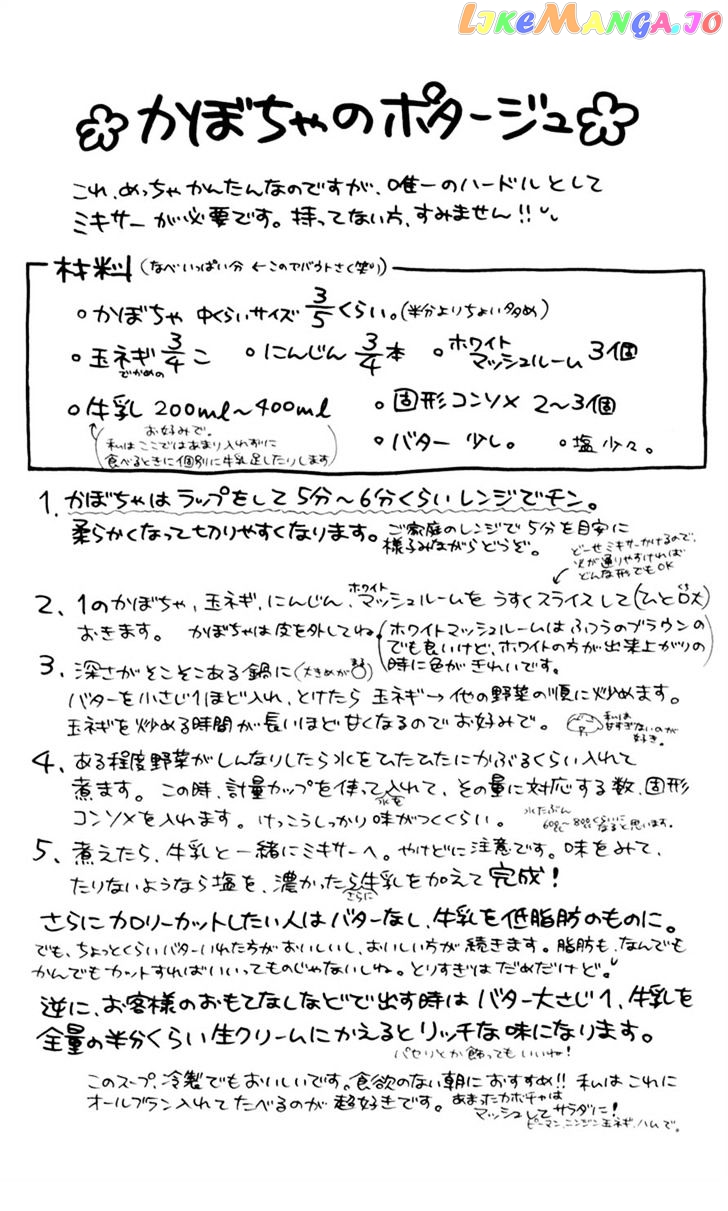 LIKEMANGA.IO
かぼちゃのポタージュ
これ、めっちゃかんたんなのですが、唯一のハードルとして
ミキサーが必要です。持ってない方、すみません!!
材料(なべいっぱい分 ←このアバウトさ(笑))
・かぼちゃ 中くらいサイズ 3/5くらい。(半分よりちょい多め)
・玉ネギ 3/4こ ・にんじん 3/4本 ・ホワイトマッシュルーム 3個
でかめの
・牛乳 200ml～400ml ・固形コンソメ 2～3個
お好みで。
私はここではあまり入れずに
食べるときに個別に牛乳足したりします
・バター 少し。 ・塩 少々。
1. かぼちゃはラップをして5分～6分くらいレンジでチン。
柔らかくなって切りやすくなります。ご家庭のレンジで5分を目安に
様子みながらどうぞ。
どーせミキサーかけるので、
火が通りやすければ
どんな形でもOK
2、1のかぼちゃ、玉ネギ、にんじん、ホワイトマッシュルームをうすくスライスして(ひと口大)
おきます。 かぼちゃは皮を外してね
(ホワイトマッシュルームはふつうのブラウンの
でも良いけど、ホワイトの方が出来上がりの
時に色がきれいです。
3、深さがそこそこある鍋に(大きめが)
バターを小さじ1ほど入れ、とけたら 玉ネギ→他の野菜の順に炒めます。
玉ネギを炒める時間が長いほど甘くなるのでお好みで。
私は
甘すぎないのが
好き。
4、ある程度野菜がしんなりしたら水をひたひたにかぶるくらい入れて
煮ます。この時、計量カップを使って水を入れて、その量に対応する数、固形
コンソメを入れます。けっこうしっかり味がつくくらい。
水たぶん
600cc～800ccくらいに
なると思います。
5、煮えたら、牛乳と一緒にミキサーへ。やけどに注意です。味をみて、
たりないようなら塩を、濃かったらさらに牛乳を加えて完成!
さらにカロリーカットしたい人はバターなし、牛乳を低脂肪のものに。
でも、ちょっとくらいバターいれた方がおいしいし、おいしい方が続きます。脂肪も、なんでも
かんでもカットすればいいってものじゃないしね。とりすぎはだめだけど。
逆に、お客様のおもてなしなどで出す時はバター大さじ1、牛乳を
全量の半分くらい生クリームにかえるとリッチな味になります。
パセリとか飾ってもいいね!
このスープ、冷製でもおいしいです。食欲のない朝におすすめ!! 私はこれに
オールブラン入れてたべるのが超好きです。
あまったカボチャは
マッシュしてサラダに!
ピーマン、ニンジン、玉ネギ、ハムで。